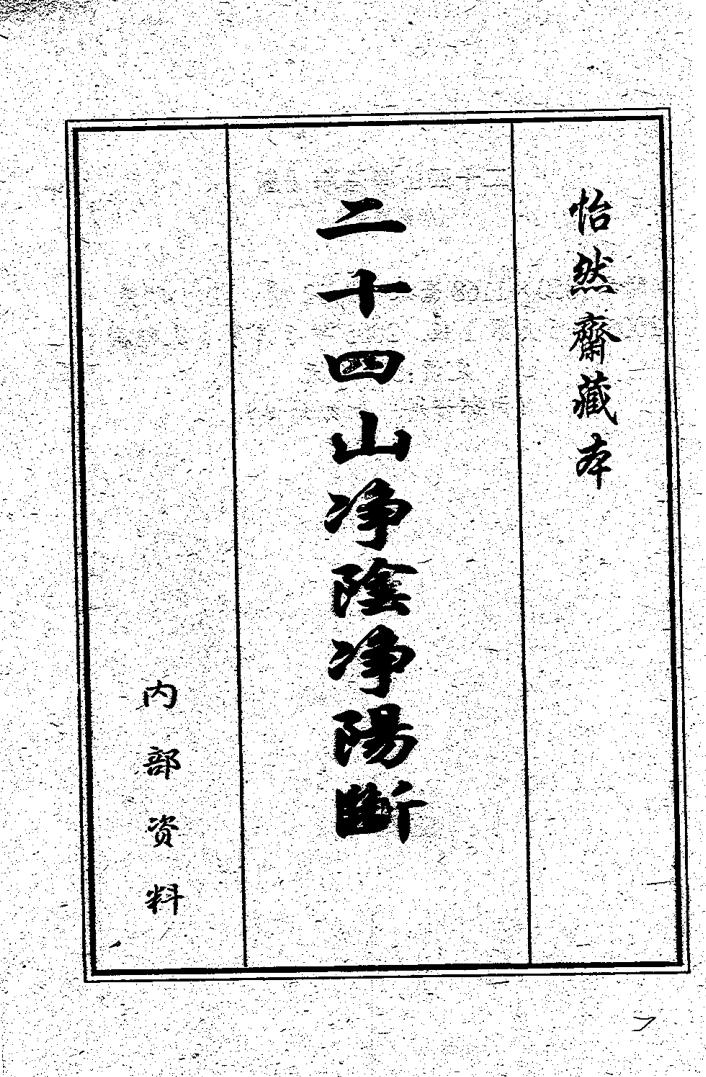 怡然齋藏本
二十四山净陰净陽斷
内部资料